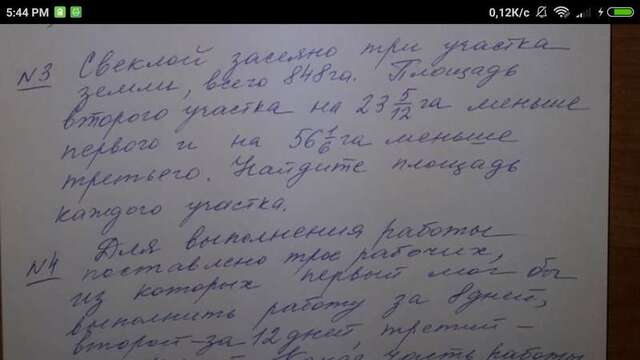 5:44 PM 0,12K/c
N3 Свеклой засеяно три участка
земли, всего 848га. Площадь
второго участка на 23 5/12 га меньше
первого и на 56 1/6 га меньше
третьего. Найдите площадь
каждого участка.
N4 Для выполнения работы
поставлено трое рабочих,
из которых первый мог бы
выполнить работу за 8дней,
второй-за 12 дней, третий-
часть работы